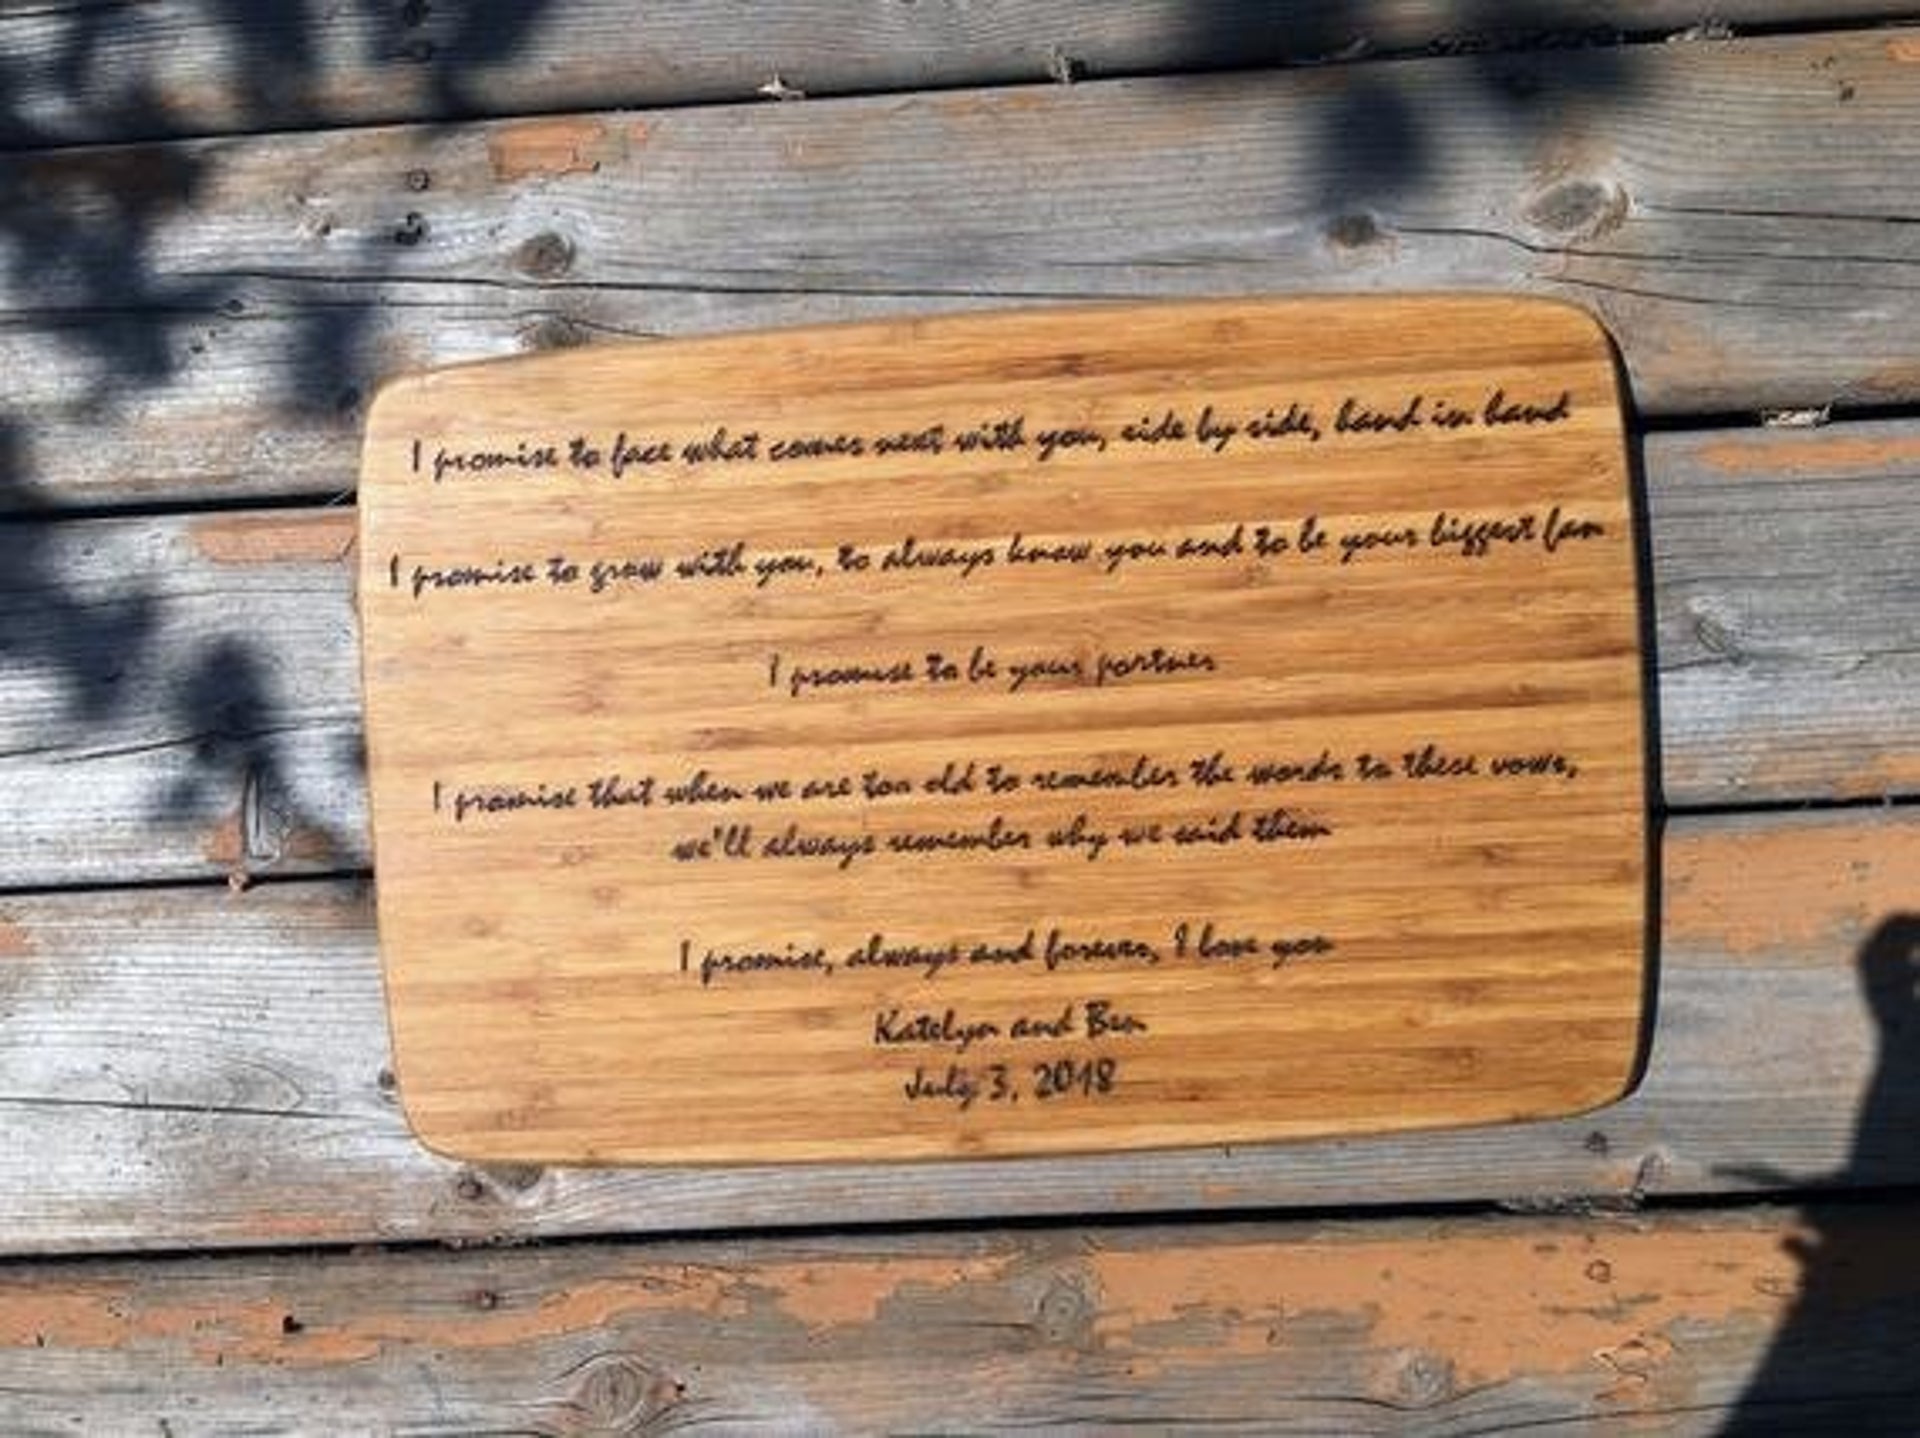 I promise to face what comes next with you, side by side, hand in hand
I promise to grow with you, to always know you and to be your biggest fan
I promise to be your partner
I promise that when we are too old to remember the words to these vows,
we'll always remember why we said them
I promise, always and forever, I love you
Katelyn and Ben
July 3, 2018